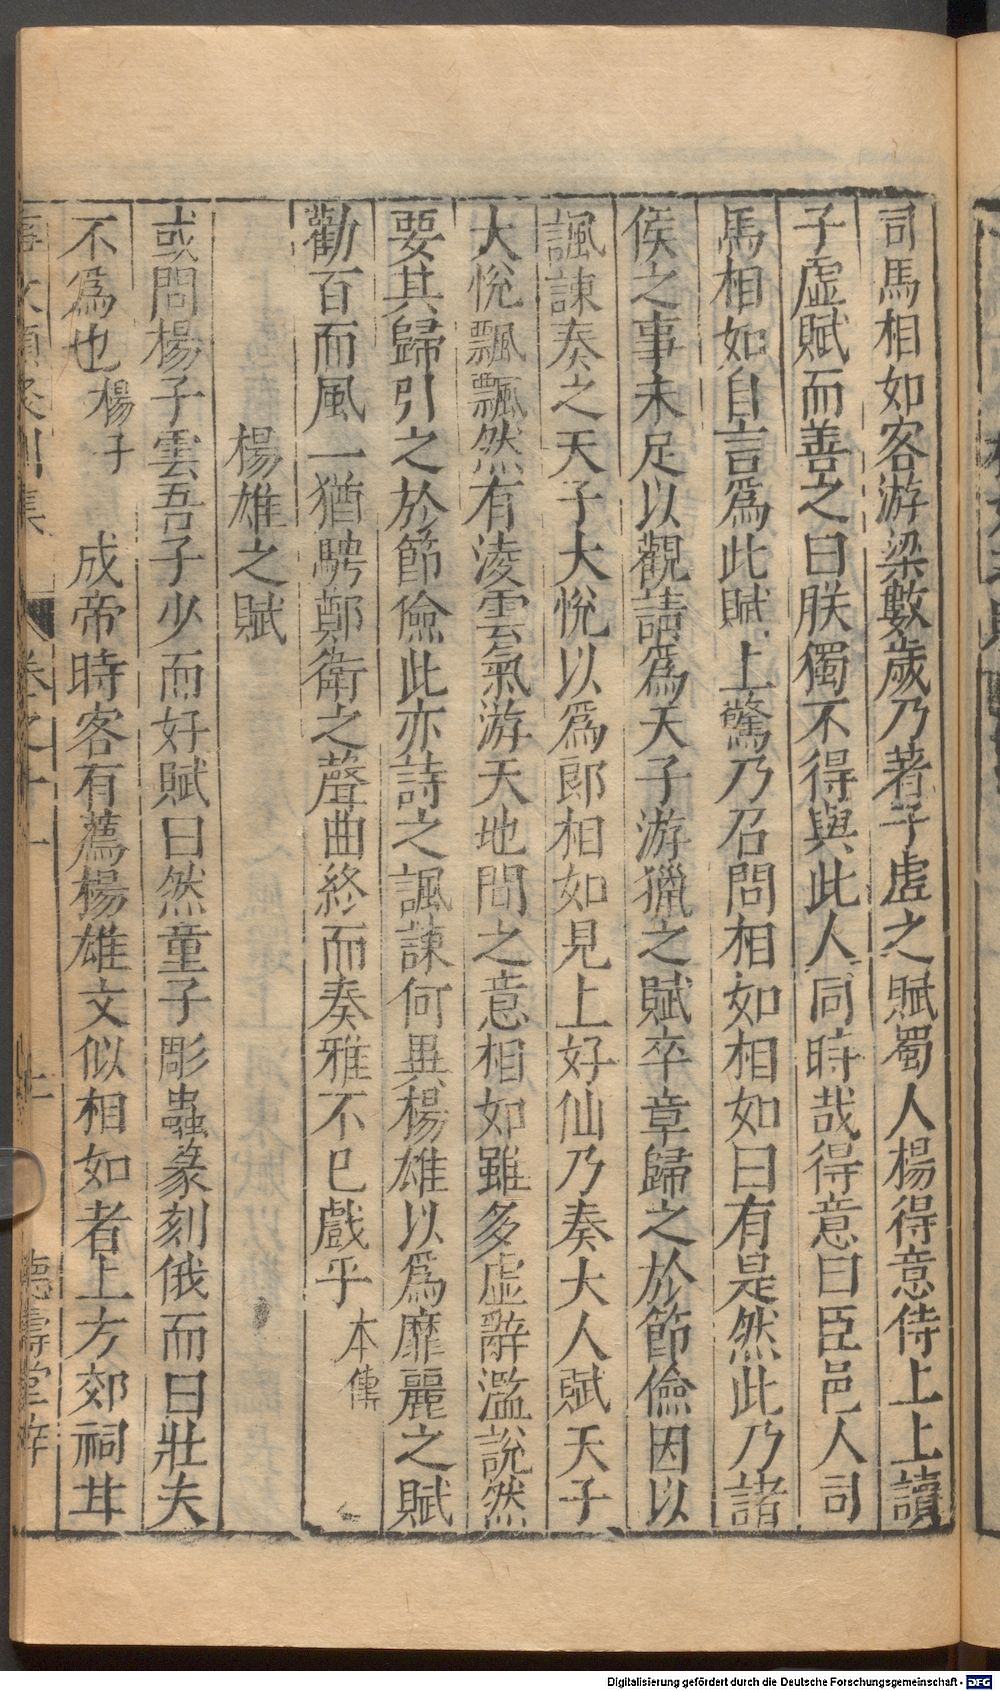 司馬相如客游梁數歲乃著子虛之賦蜀人楊得意侍上上讀
子虛賦而善之曰朕獨不得與此人同時哉得意曰臣邑人司
馬相如自言爲此賦上驚乃召問相如相如曰有是然此乃諸
侯之事未足以觀請爲天子游獵之賦卒章歸之於節儉因以
諷諫奏之天子大悅以爲郎相如見上好仙乃奏大人賦天子
大悅飄飄然有淩雲氣游天地間之意相如雖多虛辭濫說然
要其歸引之於節儉此亦詩之諷諫何異楊雄以爲靡麗之賦
勸百而風一猶騁鄭衛之聲曲終而奏雅不已戲乎 本傳
楊雄之賦
或問楊子雲吾子少而好賦曰然童子彫蟲篆刻俄而曰壯夫
不爲也 楊子 成帝時客有薦楊雄文似相如者上方郊祠甘
集 卷之十一
德壽堂梓
Digitalisierung gefördert durch die Deutsche Forschungsgemeinschaft - DFG